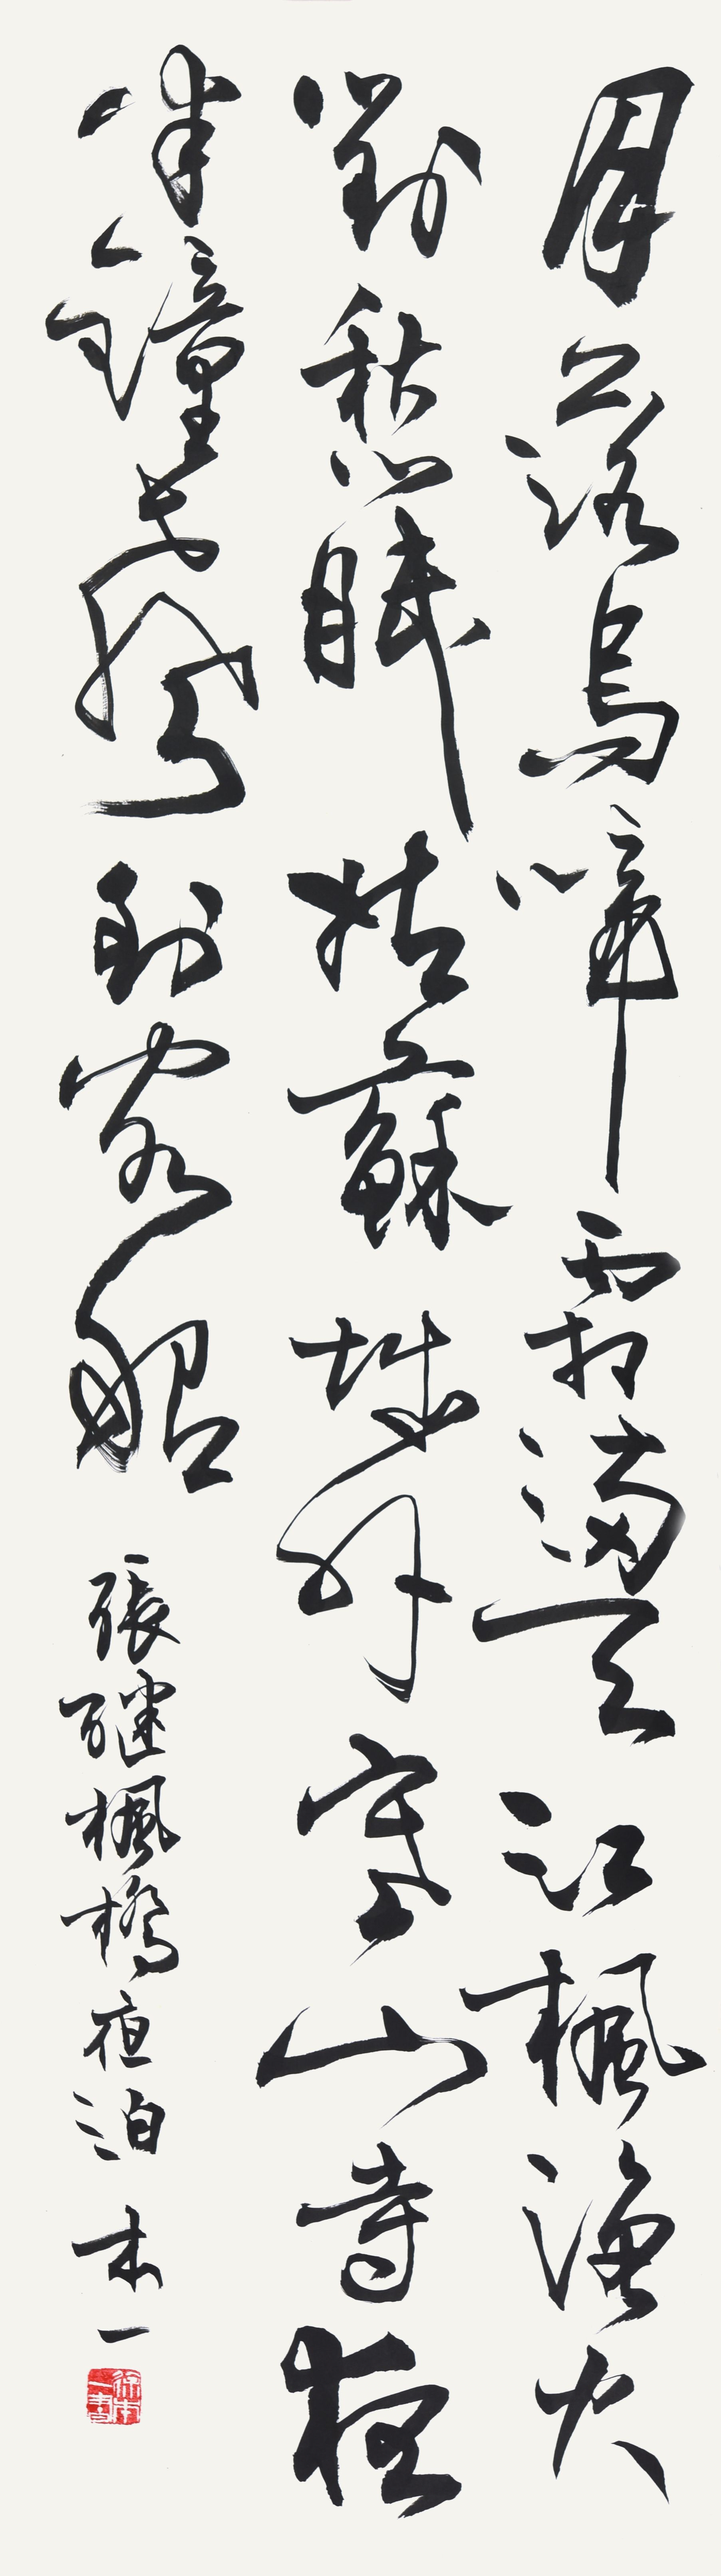 月落烏啼霜滿天江楓漁火
對愁眠姑蘇城外寒山寺夜
半鐘聲到客船 張繼楓橋夜泊 本一
徐本一書